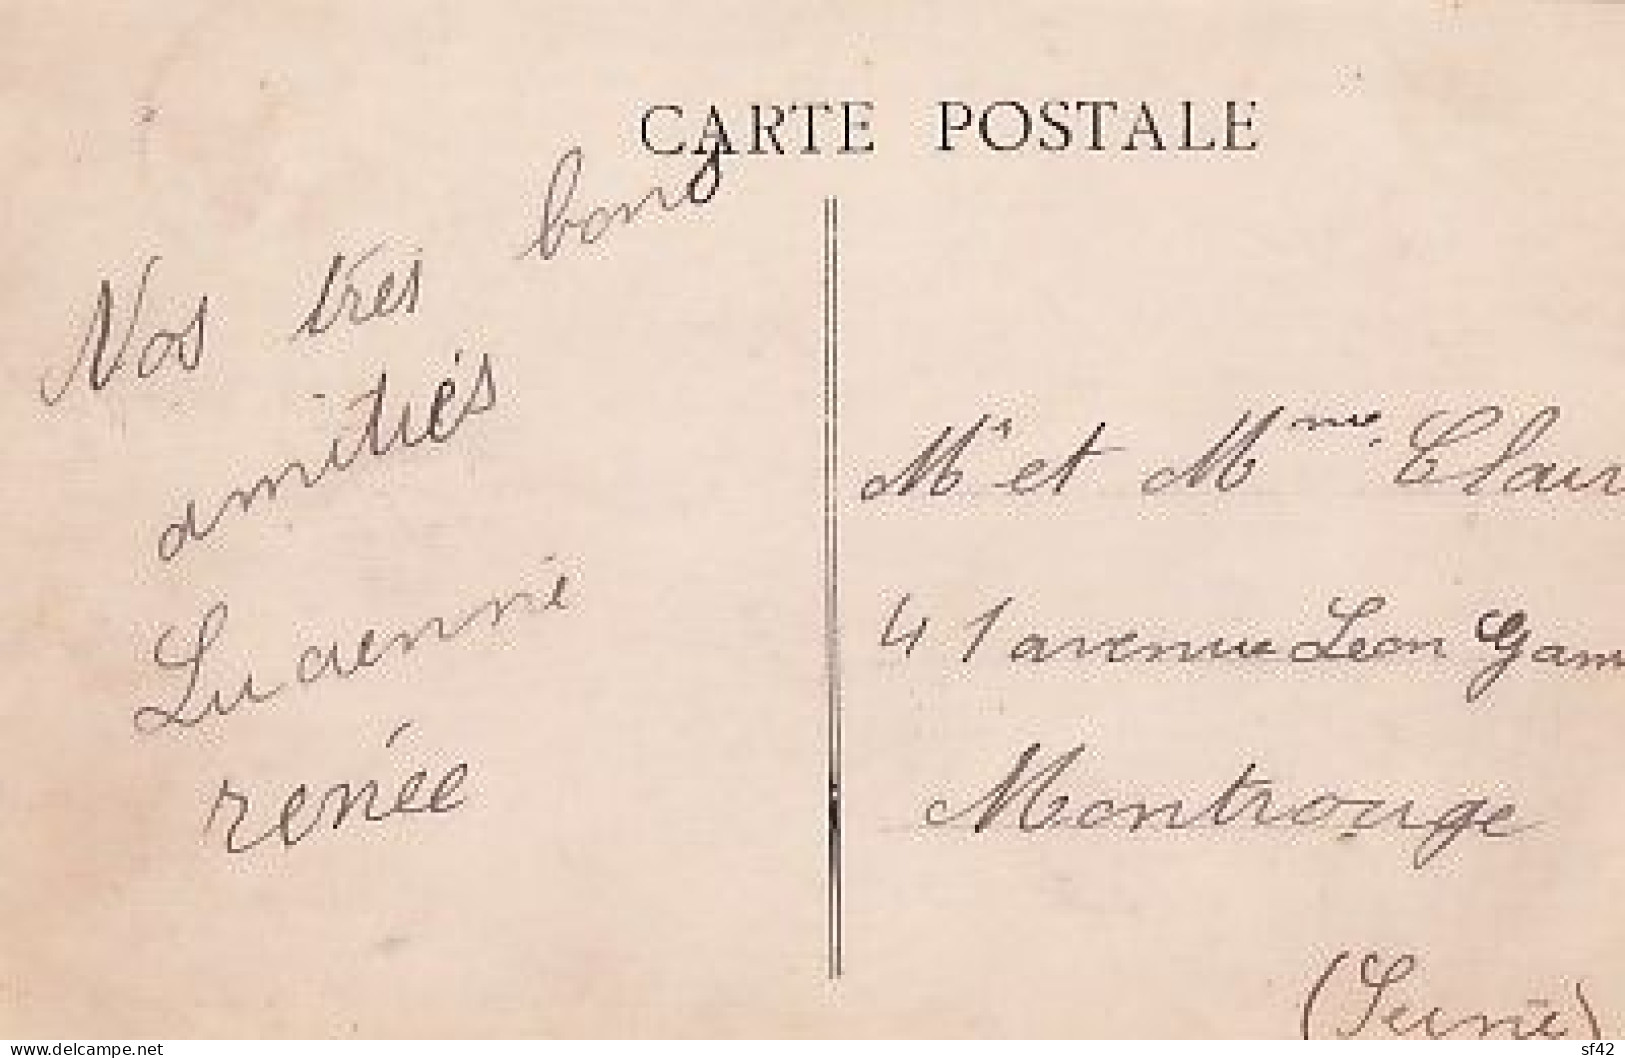 CARTE POSTALE
Nos tres bons
amitiés
Lucienne
renée
Mr et Mme Clair
41 avenue Leon Gam
Montrouge
(Seine)
delcampe.net
sf42